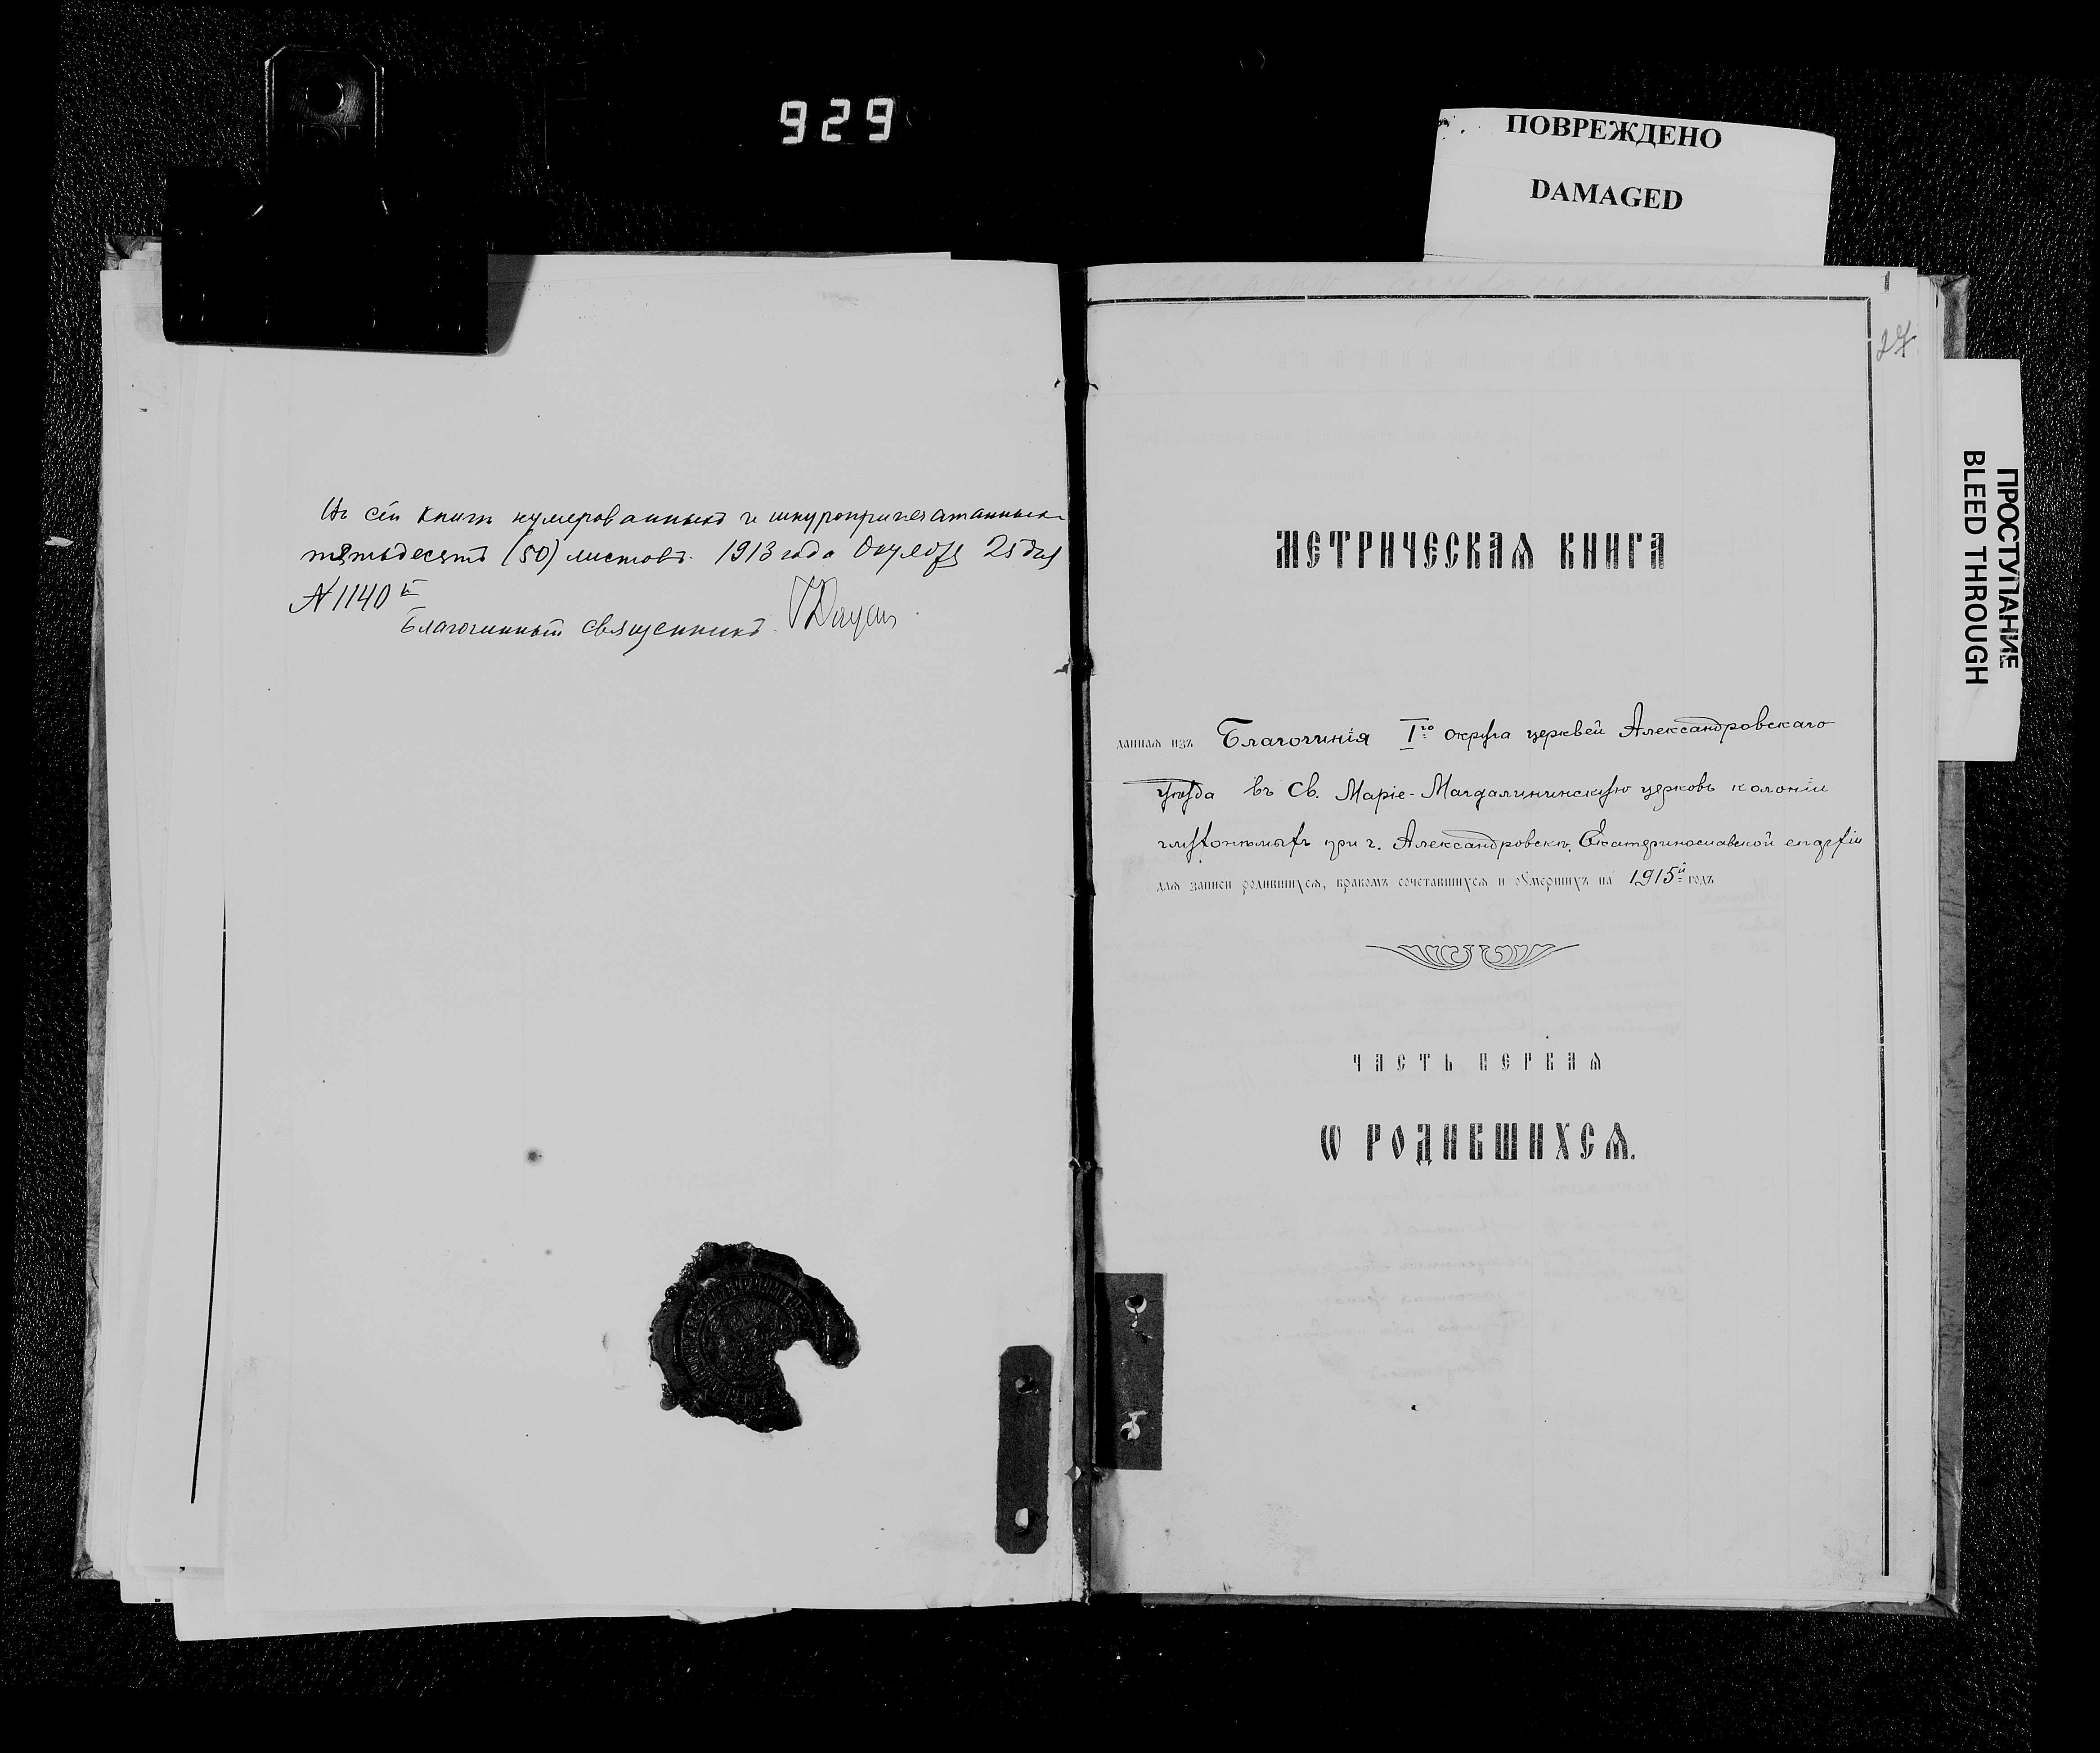 929
ПОВРЕЖДЕНО
DAMAGED
ПРОСТУПАНИЕ
BLEED THROUGH
Въ сей книгѣ нумерованныхъ и шнуропричатанныхъ
пятьдесятъ (50) листовъ. 1913 года 25 дня
№ 1140 й
Благочинный священникъ
1
27
МЕТРИЧЕСКАѦ КНИГА
даннаѧ изъ Благочинія Iго округа церквей Александровскаго
уѣзда въ Св. Маріе-Магдалининскую церковь колоніи
глухонѣмыхъ при г. Александровскѣ, Екатеринославской епархіи
длѧ записи родившихсѧ, бракомъ сочетавшихсѧ и оумершихъ на 1915й годъ
ЧАСТЬ ПЕРВАѦ
Ѡ РОДИВШИХСѦ.